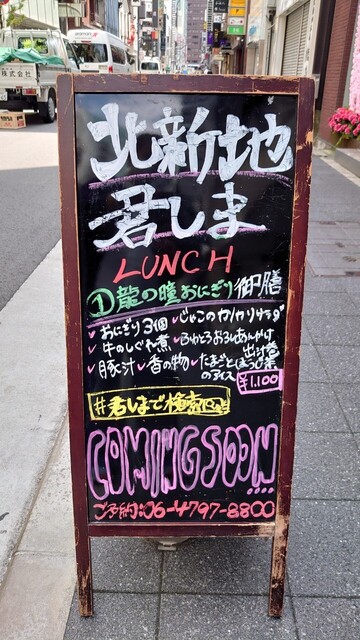 北新地
君しま
LUNCH
①龍の瞳おにぎり御膳
✓おにぎり3個 ✓じゃこのカリカリサラダ
✓牛のしぐれ煮 ✓ふわとろおろしあんかけ出汁煮
✓豚汁 ✓香の物 ✓たまごとほうじ茶のアイス
¥1,100
#君しまで検索
COMING SOON....
ご予約:06-4797-8800
株式会社